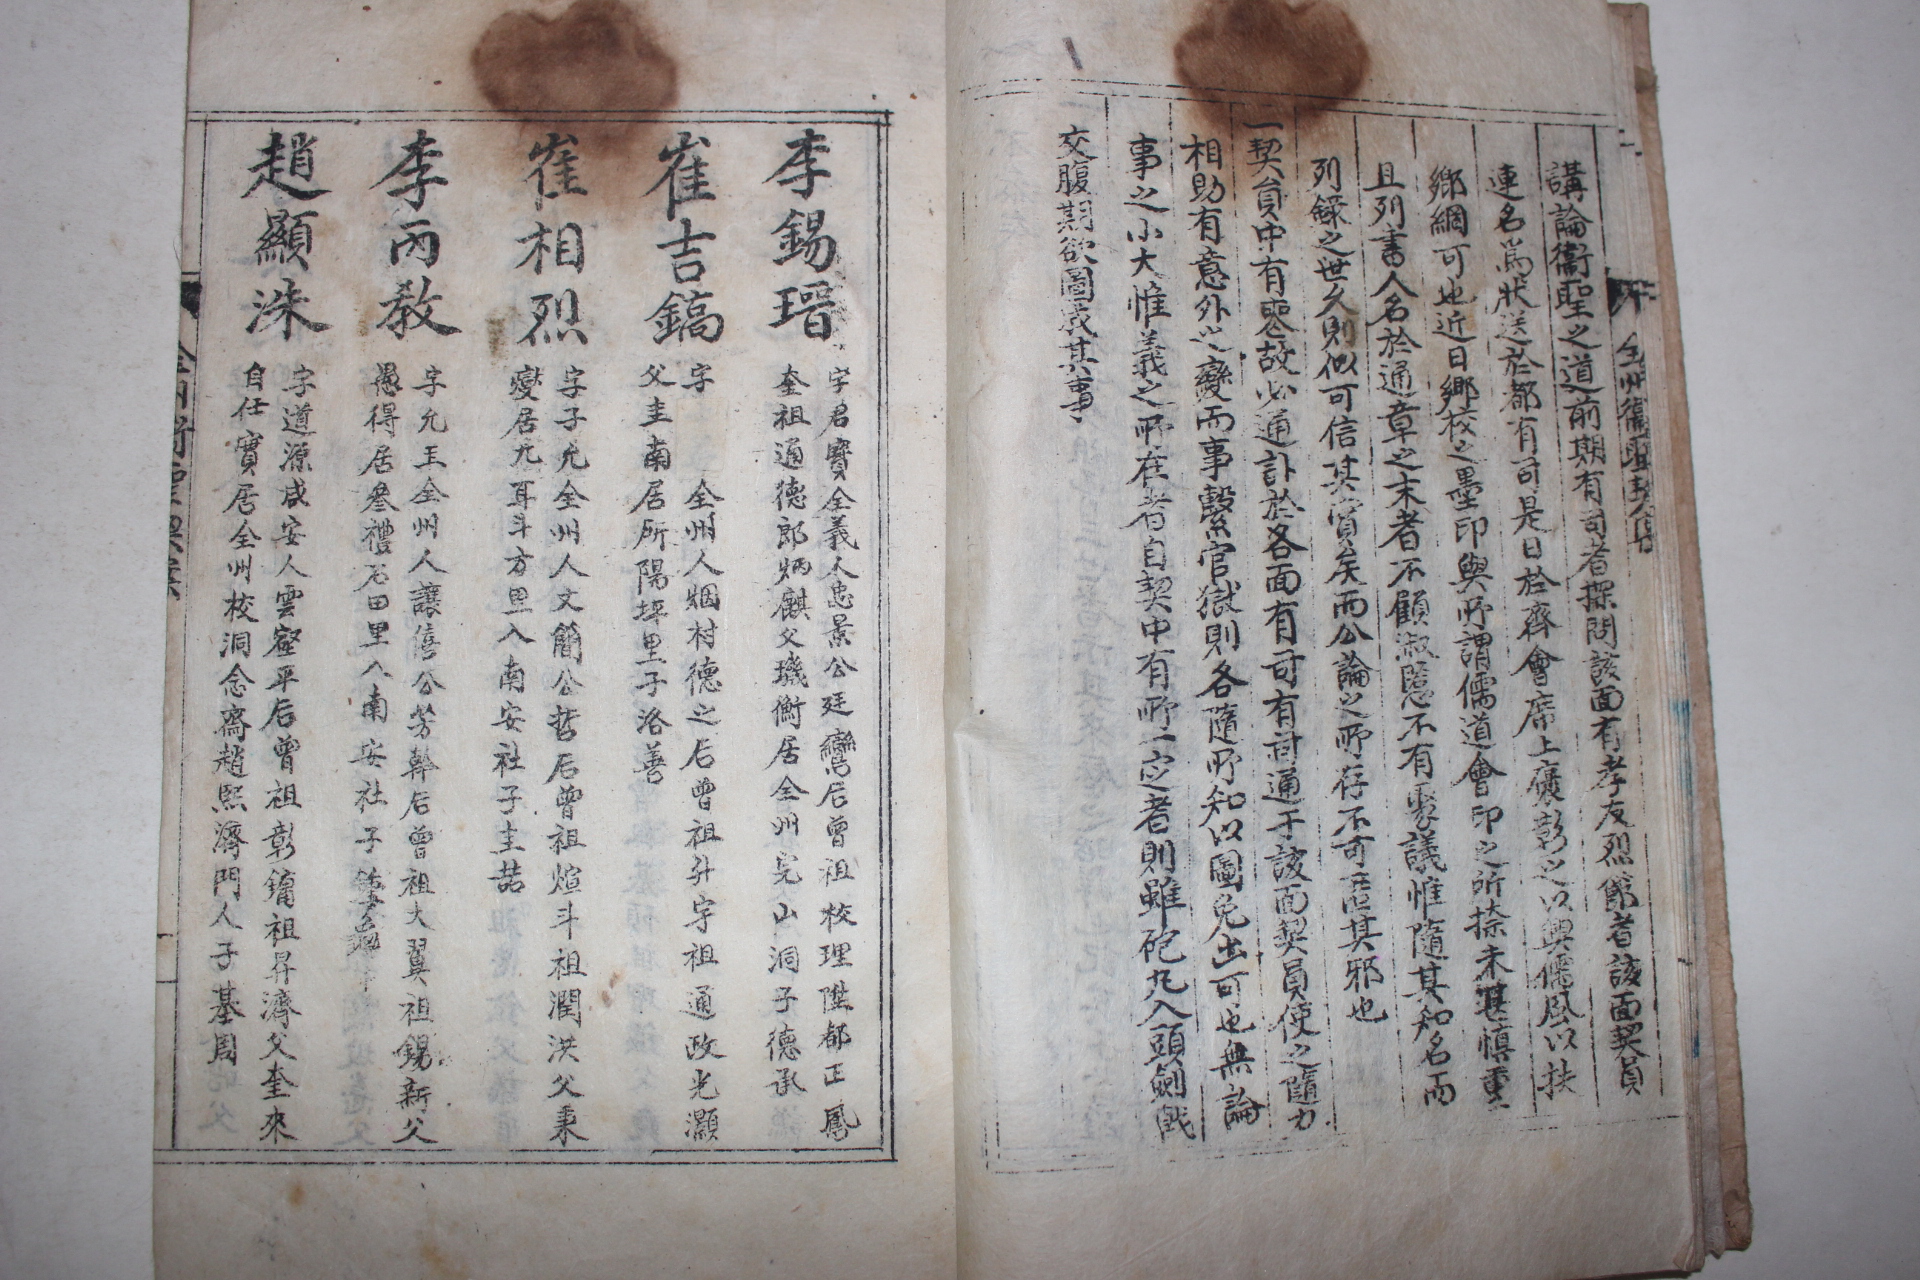 講論衞聖之道前期有司者探問該面有孝友烈節者該面契員
連名爲狀送於都有司是日於齊會席上褒彰之以興儒風以扶
鄉綱可也近日鄉校之墨印與所謂儒道會印之所捺未甚慎重
且列書人名於通章之末者不顧淑慝不有爰議惟隨其知名而
列錄之世久則似可信其實矣而公論之所存不可否其邪也
一契員中有喪故必通訃於各面有司有司通于該面契員使之隨力
相助有意外之變而事繫官獄則各隨所知以圖免出可也無論
事之小大惟義之所在者自契中有所一定者則雖砲丸入頭劍戟
交腹期欲圖成其事
全州衞聖契
李錫瑨
字君寶全義人忠景公廷鸞后曾祖校理陞都正鳳
奎祖通德郎炳麒父璣衡居全州完山洞子德承
崔吉鎬
字 全州人烟村德之后曾祖升宇祖通政光灝
父圭南居所陽坪里子洛善
崔相烈
字子允全州人文簡公哲后曾祖煊斗祖潤洪父秉
燮居九耳斗方里入南安社子圭喆
李丙敎
字允玉全州人讓僖公芳幹后曾祖大翼祖錫新父
愚得居參禮石田里入南安社子
趙顯洙
字道源咸安人雲壑平后曾祖彰鏞祖昇濟父奎來
自任實居全州校洞念齋趙熙濟門人子基周
全州衞聖契案